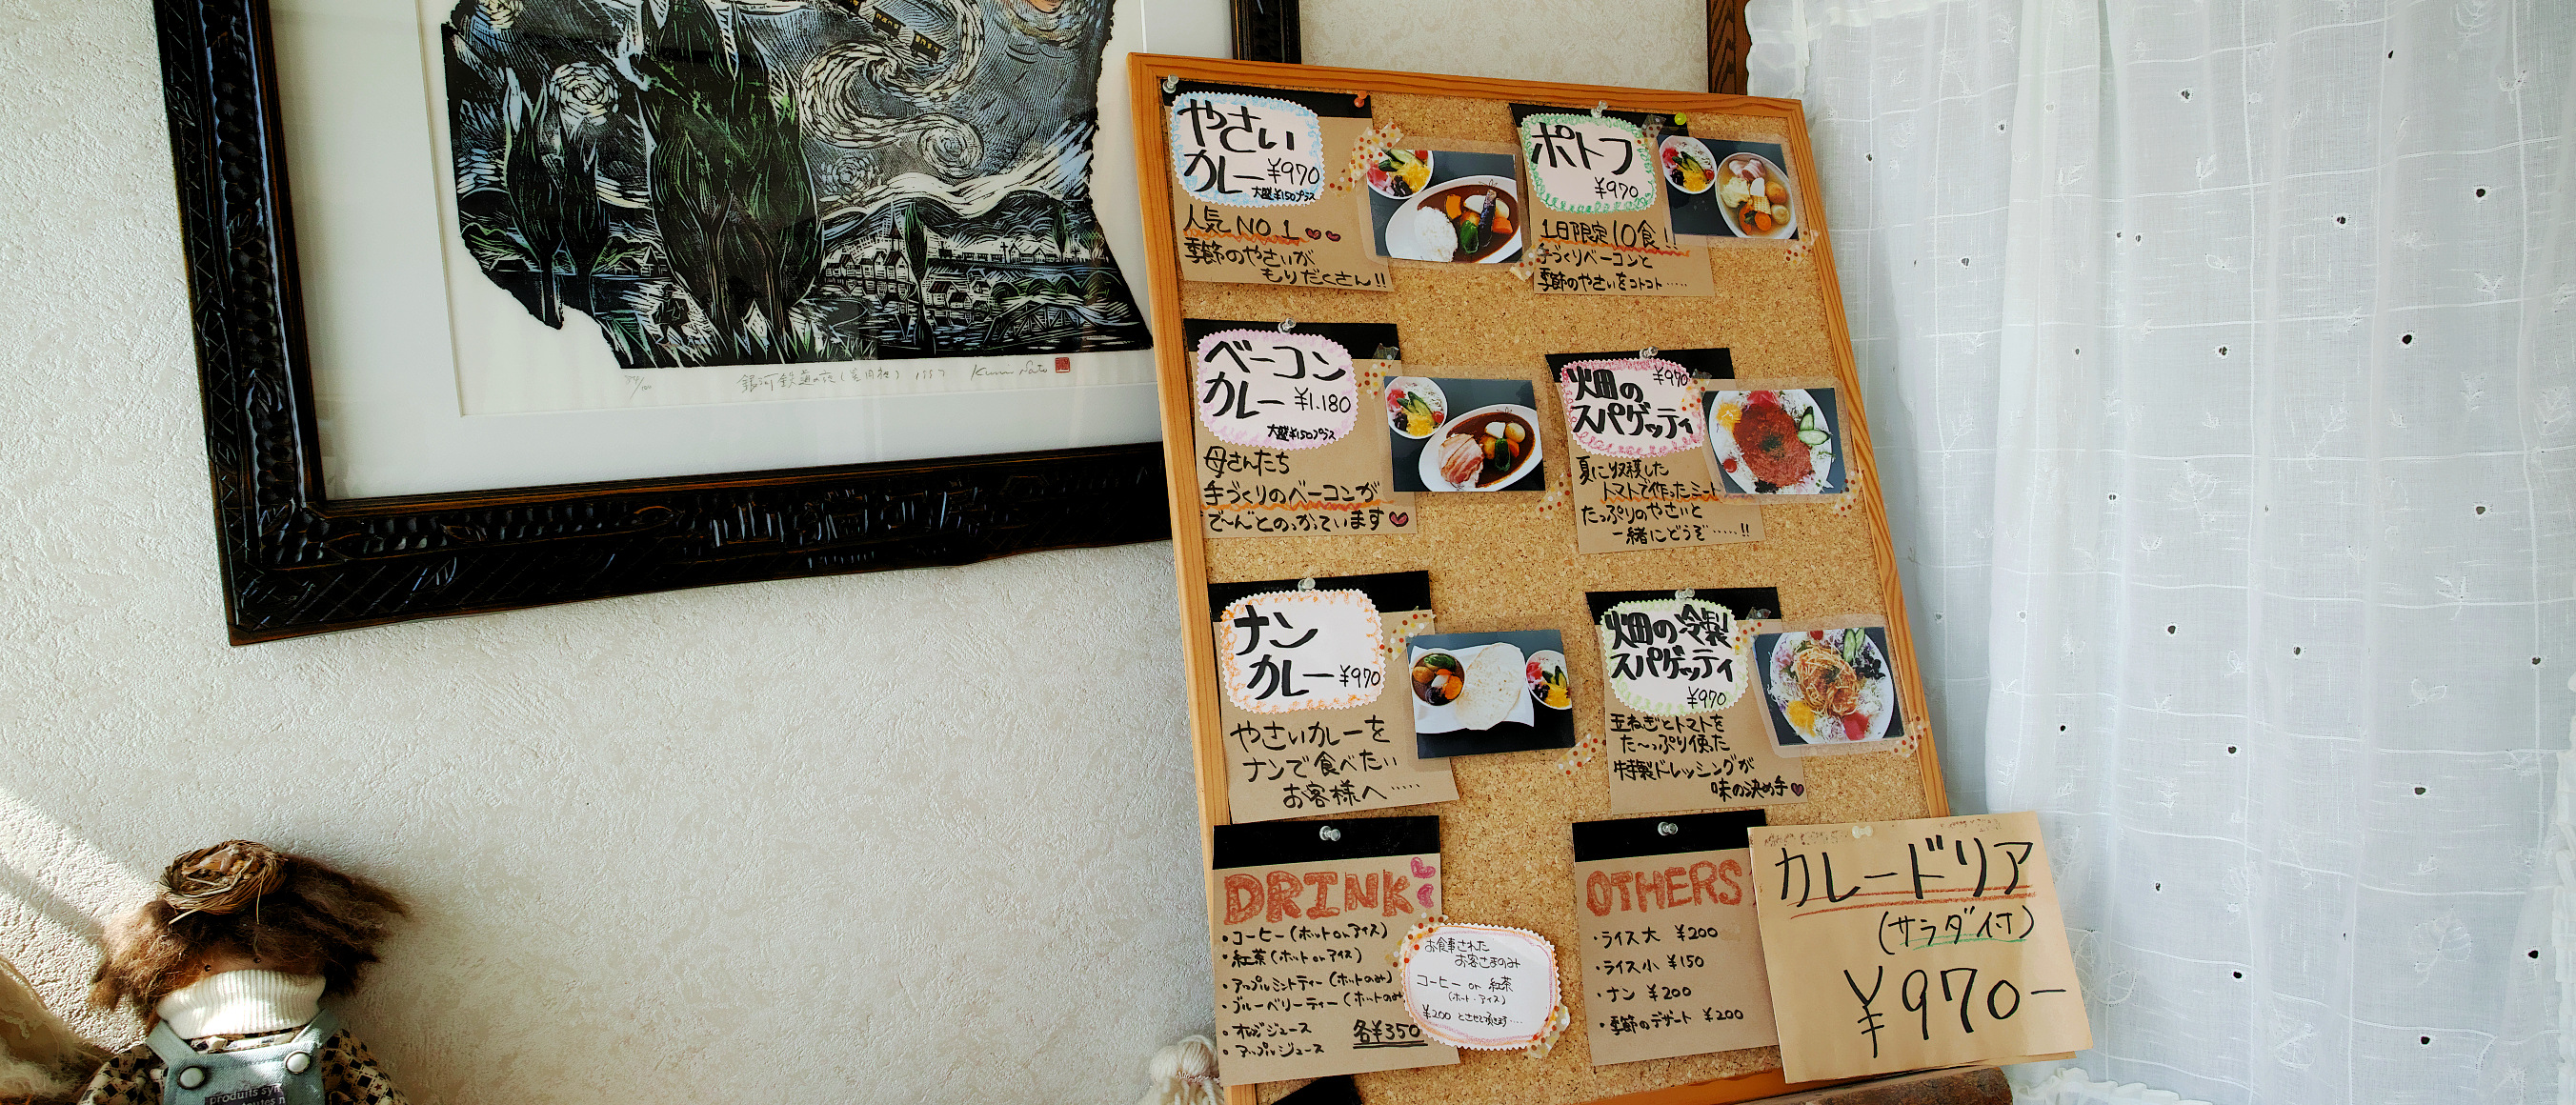 銀河鉄道の夜 1997 Kunio Sato
やさい
カレー ¥970
大盛¥150プラス
人気 NO.1
季節のやさいが
もりだくさん!!
ポトフ
¥970
1日限定10食!!
手づくりベーコンと
季節のやさいをコトコト‥‥
ベーコン
カレー ¥1.180
大盛¥150プラス
母さんたち
手づくりのベーコンが
で〜んとのっかっています
畑の ¥970
スパゲッティ
夏に収穫した
トマトで作ったミート
たっぷりのやさいと
一緒にどうぞ‥‥!!
ナン
カレー ¥970
やさいカレーを
ナンで食べたい
お客様へ‥‥
畑の冷製
スパゲッティ
¥970
玉ねぎとトマトを
た〜っぷり使った
特製ドレッシングが
味の決め手
DRINK
・コーヒー(ホット or アイス)
・紅茶(ホット or アイス)
・アップルミントティー(ホットのみ)
・ブルーベリーティー(ホットのみ
・オレンジジュース
・アップルジュース
各¥350
お食事された
お客さまのみ
コーヒー or 紅茶
(ホット・アイス)
¥200 とさせて頂きます‥‥
OTHERS
・ライス大 ¥200
・ライス小 ¥150
・ナン ¥200
・季節のデザート ¥200
カレードリア
(サラダ付)
¥970−
produits sy